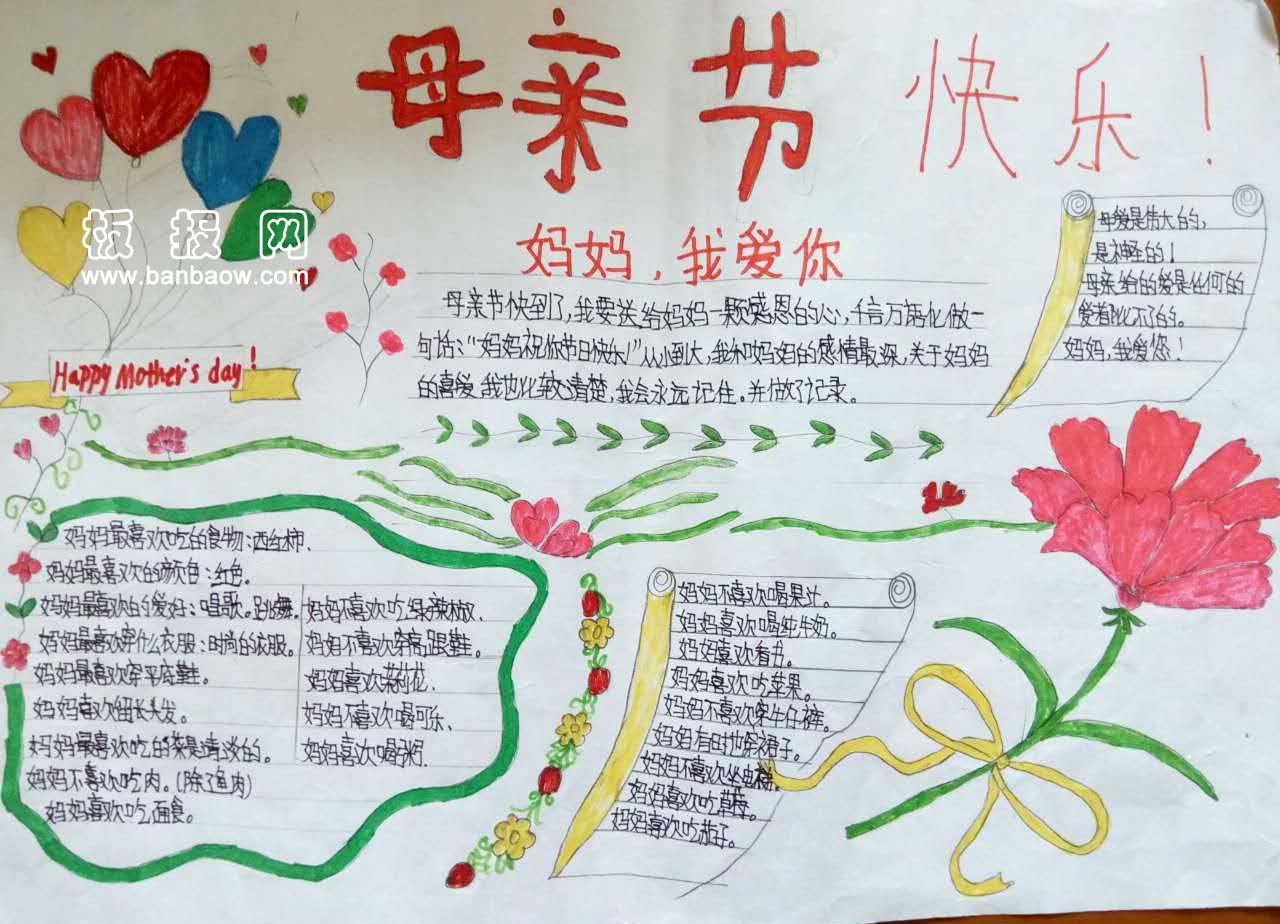 母亲节快乐！
妈妈，我爱你
母亲节快到了，我要送给妈妈一颗感恩的心，千言万语化做一
句话：“妈妈祝你节日快乐！”从小到大，我和妈妈的感情最深，关于妈妈
的喜爱我也比较清楚，我会永远记住。并做了记录。
母爱是伟大的，
是神圣的！
母亲给的爱是任何的
爱都比不了的。
妈妈，我爱您！
板报网
www.banbaow.com
Happy Mother's day!
妈妈最喜欢吃的食物：西红柿.
妈妈最喜欢的颜色：红色。
妈妈最喜欢的爱好：唱歌。跳舞。
妈妈最喜欢穿什么衣服：时尚的衣服。
妈妈最喜欢穿平底鞋。
妈妈喜欢留长头发。
妈妈最喜欢吃的菜是清淡的。
妈妈不喜欢吃肉。(除了鱼肉)
妈妈喜欢吃面食。
妈妈不喜欢吃绿辣椒.
妈妈不喜欢穿高跟鞋。
妈妈喜欢茉莉花.
妈妈不喜欢喝可乐.
妈妈喜欢喝粥.
妈妈不喜欢喝果汁。
妈妈喜欢喝纯牛奶。
妈妈喜欢看书。
妈妈喜欢吃苹果。
妈妈不喜欢穿牛仔裤。
妈妈有时也穿裙子。
妈妈不喜欢坐电梯。
妈妈喜欢吃草莓。
妈妈喜欢吃茄子。